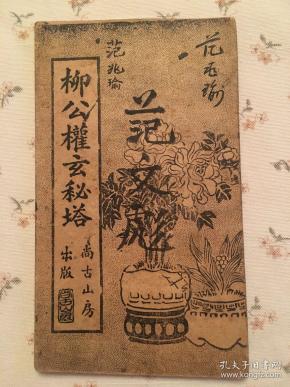 柳公權玄秘塔
尚古山房
出版
范兆瑜
范兆瑜
范文彪
孔夫子旧书网